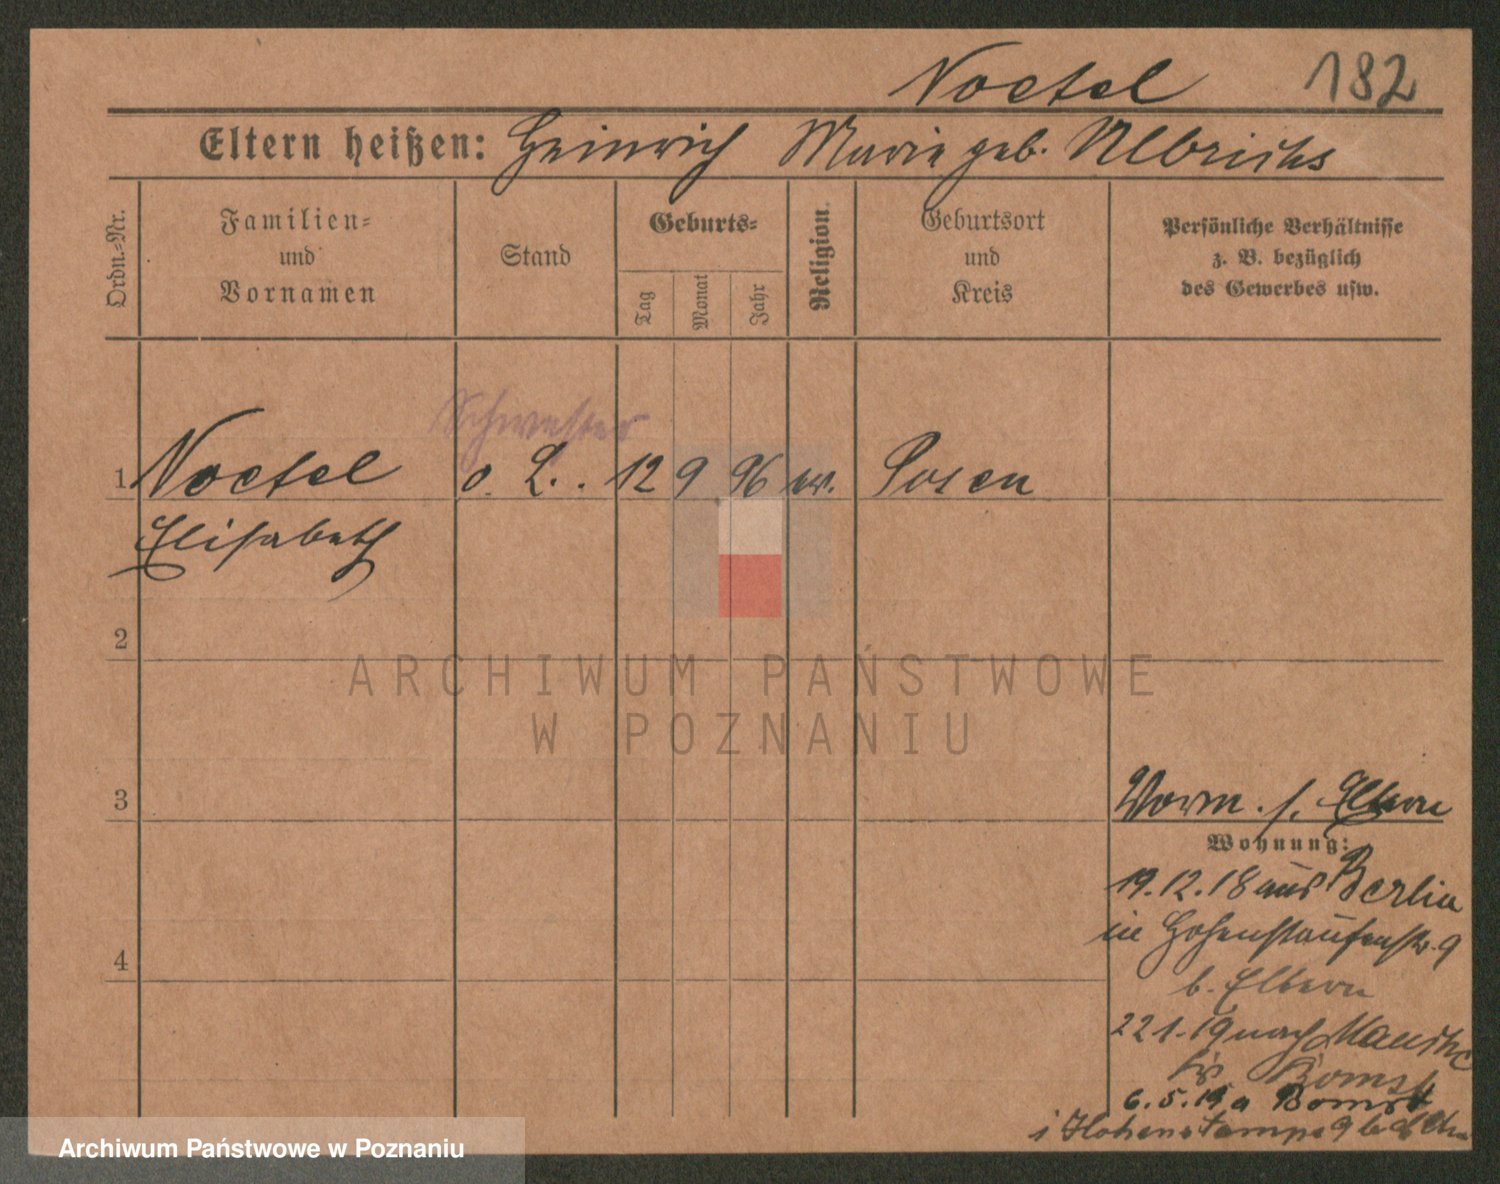 Noetel 182
Eltern heißen: Heinrich Marie geb. Ulbrichs
Ordn.-Nr.
Familien-
und
Vornamen
Stand
Geburts-
Tag
Monat
Jahr
Religion.
Geburtsort
und
Kreis
Persönliche Verhältnisse
z. B. bezüglich
des Gewerbes usw.
Schwester
1 Noetel o. 12 9 96 ev. Posen
Elisabeth
2
ARCHIWUM PAŃSTWOWE
W POZNANIU
3
Vorm. s. Eltern
Wohnung:
19.12.18 aus Berlin
in Hohenstaufenstr. 9
b. Eltern
4
22 1. 19 nach
Bomst
6.5.19 a Bomst
i 9
Archiwum Państwowe w Poznaniu